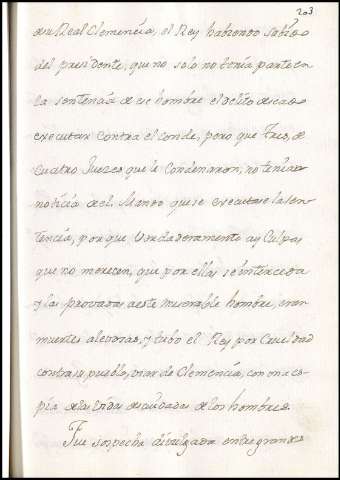 203
de su Real Clemencia, el Rey habiendo sabido
del presidente, que no solo no tenia parte en
la sentencia de ese hombre el delito de
executar contra el conde, pero que tres, de
cuatro Jueces que le Condenaron, no tenian
noticia de el. Mando que se executase la sen-
tencia, por que Verdaderamente ay Culpas
que no merecen, que por ellas se interceda
y las provadas a este miserable hombre, eran
muertes alevosas, y tubo el Rey por Crueldad
contra su pueblo, usar de Clemencia, con una co-
pia de las vidas descuidadas de los hombres.
Fue sospecha divulgada entre grandes